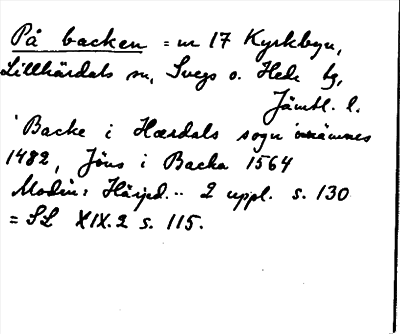 På backen = nr 17 Kyrkbyn,
Lillhärdals sn, Svegs o. Hede tg,
Jämtl. l.
Backe i Hærdals sogn omnämnes
1482, Jöns i Backa 1564
Modin: Härjed. .. 2 uppl. s. 130
= SL XIX.2 s. 115.